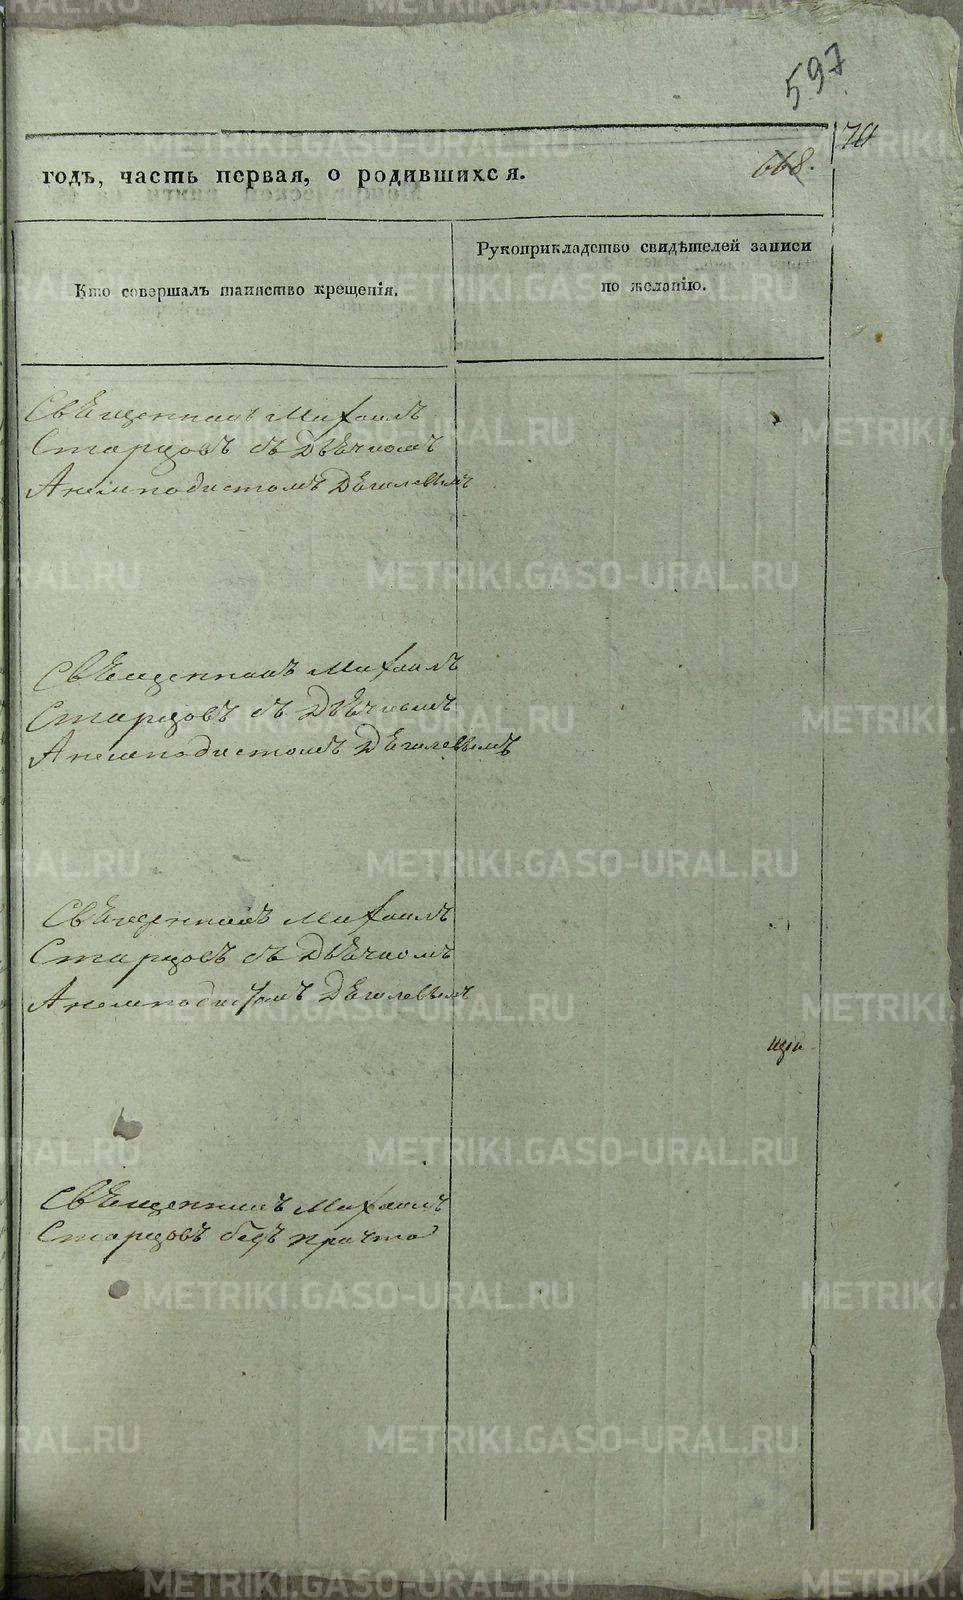 597
70
668.
годъ, часть первая, о родившихся.
Кто совершалъ таинство крещенія.
Рукоприкладство свидѣтелей записи
по желанію.
Священникъ Михаилъ
Старцовъ съ Дьячкомъ
Анемподистомъ Дягилевымъ
Священникъ Михаилъ
Старцовъ съ Дьячкомъ
Анемподистомъ Дягилевымъ
Священникъ Михаилъ
Старцовъ съ Дьячкомъ
Анемподистомъ Дягилевымъ
Священникъ Михаилъ
Старцовъ безъ причта
METRIKI.GASO-URAL.RU